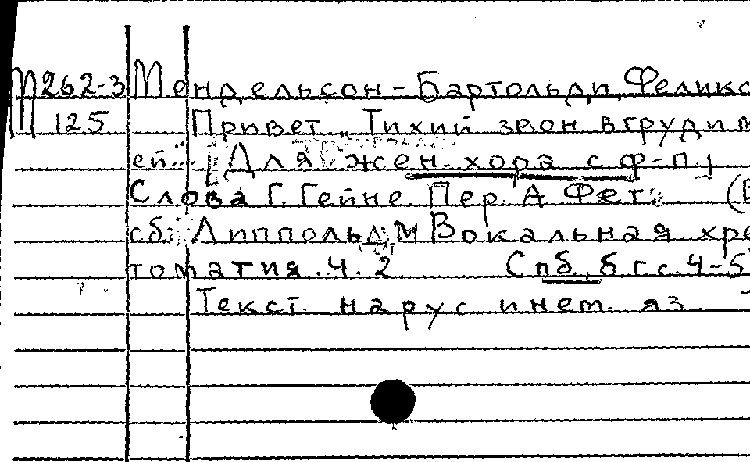 М262-3 Мендельсон-Бартольди, Феликс
М 125 Привет „Тихий звон в груди м
ей..." [Для жен. хора с ф-п.]
Слова Г. Гейне. Пер. А. Фет. (В
сб: Липпольд, М Вокальная хре
томатия. Ч. 2 Спб, б. г. с. 4-5
Текст на рус и нем. яз.